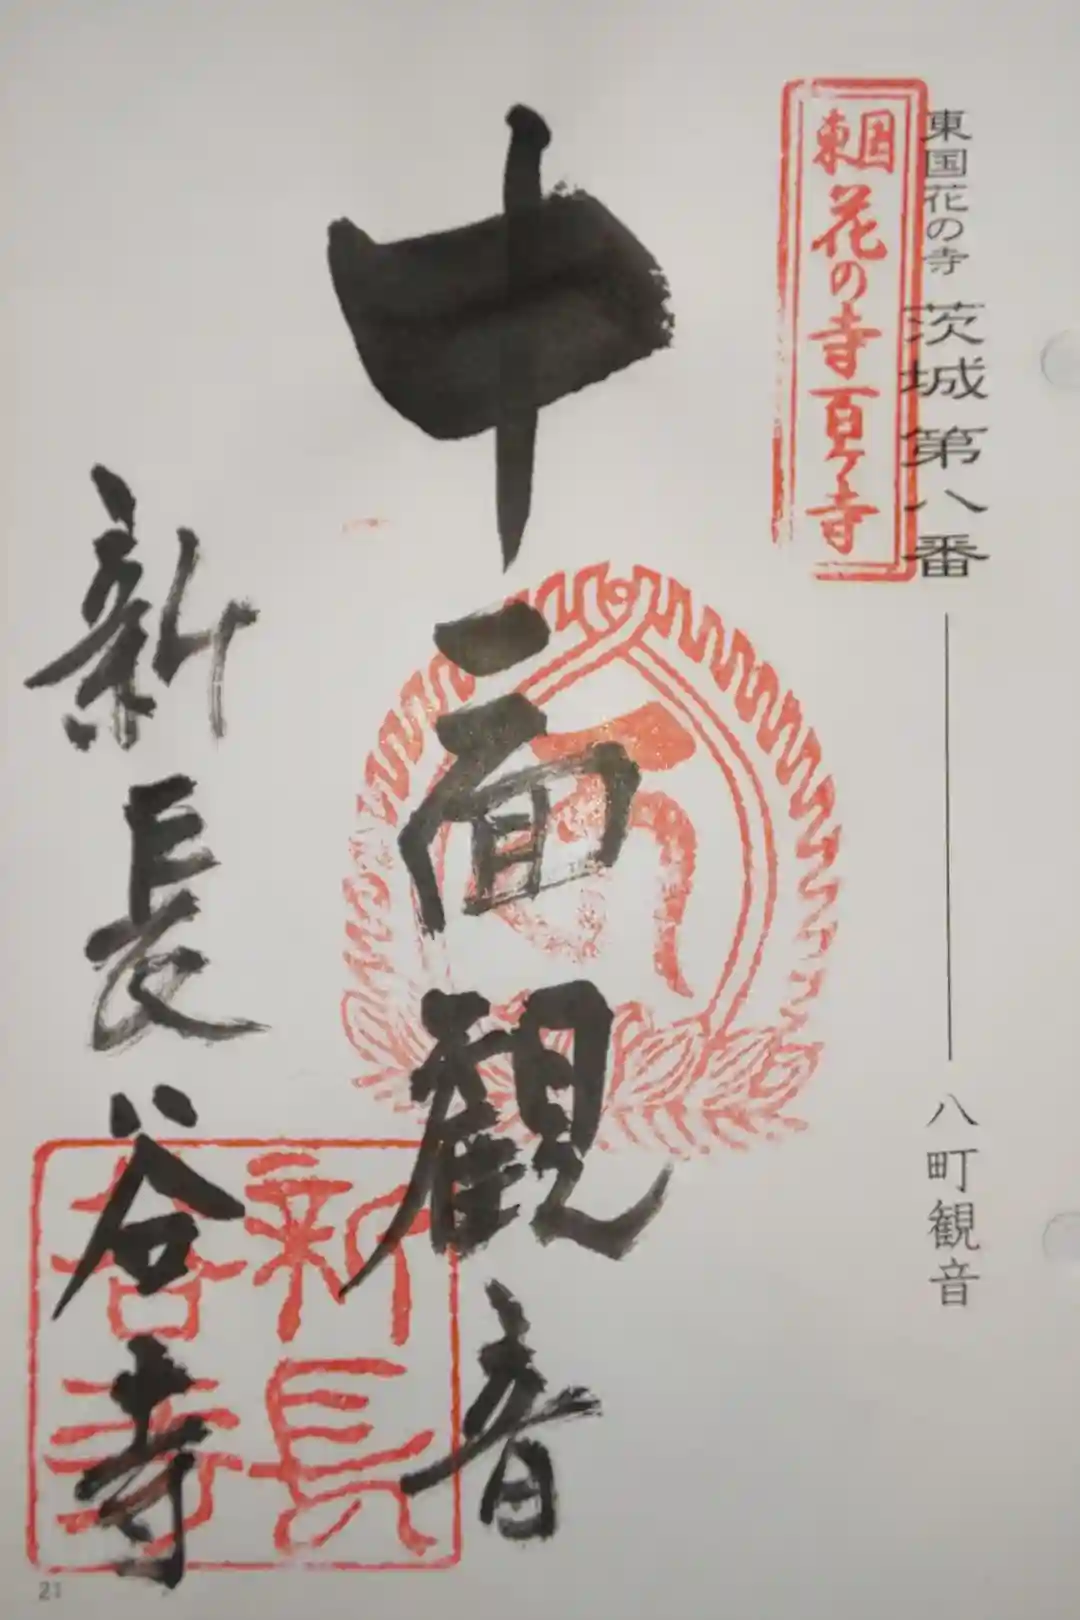 東国花の寺 茨城 第八番 八町観音
東国花の寺百ヶ寺
十一面観音
新長谷寺
新長谷寺
21